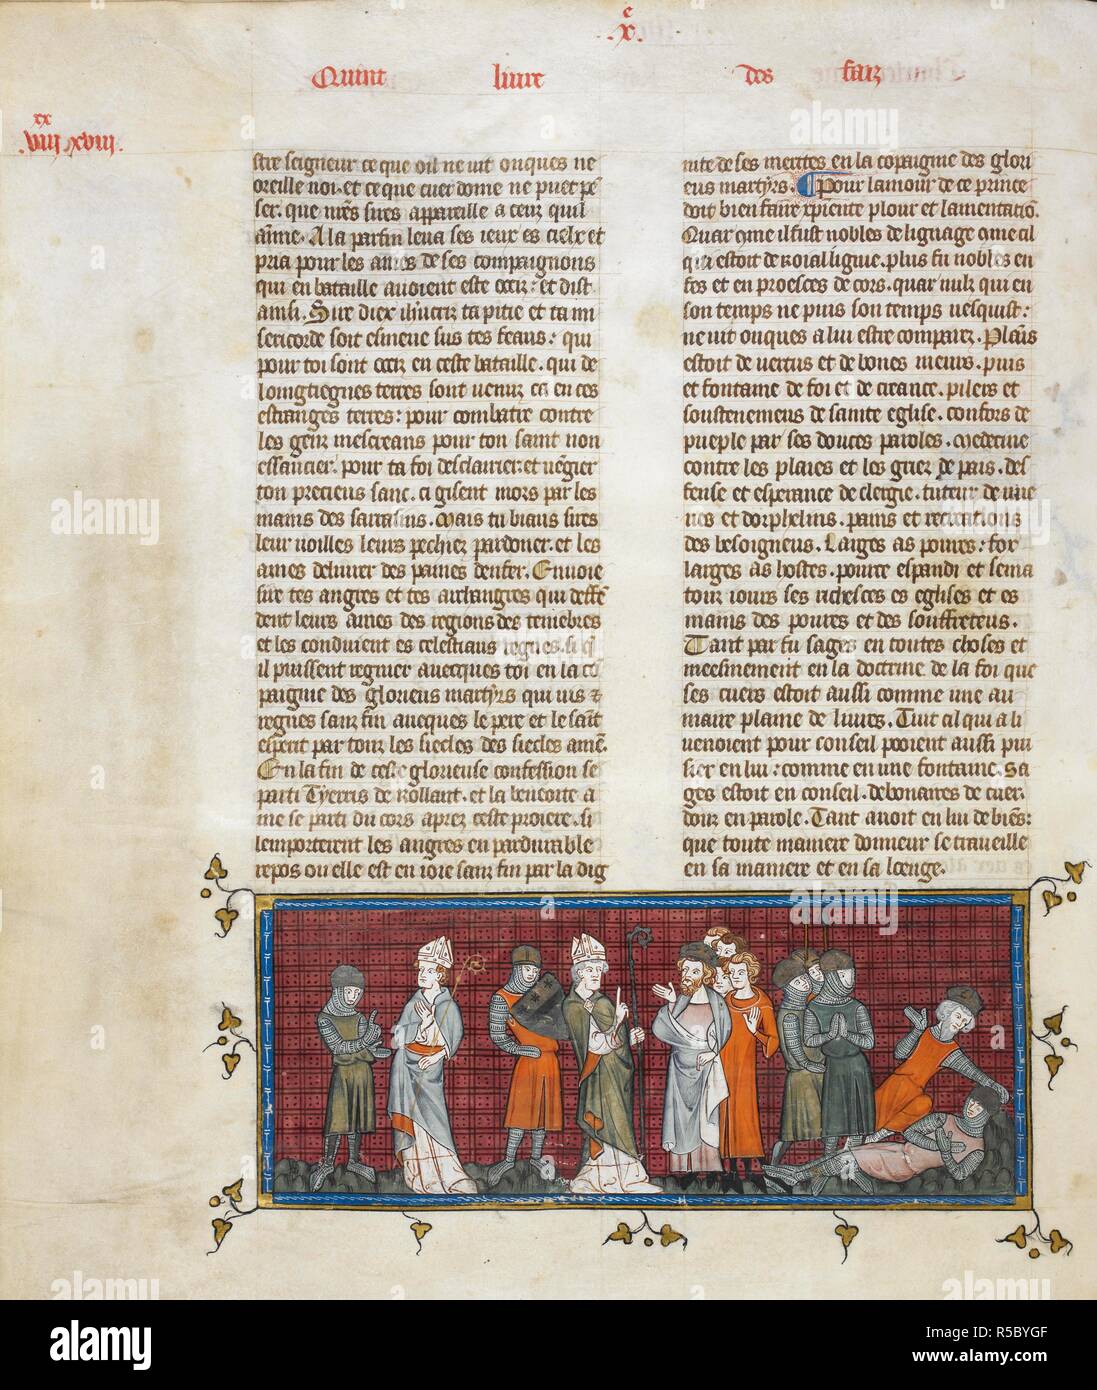 .x.
c
Quint liure des faiz
xx
.viii xviii.
stre seigneur ce que oil ne uit onques ne
oreille noi. et ce que cuer dome ne puet pẽ
ser. que nr̃es sires appareille a ceuz quil
aĩme. A la parfin leua ses ieux es cielx et
pria pour les ames de ses compaignons
qui en bataille auoient este occiz: et dist
ainsi. Sire diex ta pitie et ta mi
sericorde soit esmeue sus tes feaus: qui
pour toi sont occiz en ceste bataille. qui de
loingtiegnes terres sont uenuz ca en ces
estranges terres: pour combatre contre
les genz mescreans pour ton saint non
essaucier. pour ta foi desclairier. et uẽgier
ton precieus sanc. ci gisent mors par les
mains des sarrasins. Mais tu biaus sires
leur uoilles leurs pechiez pardoner. et les
ames deliurer des paines denfer. Enuoie
sire tes angres et tes archangres qui deffẽ
dent leurs ames des regions des tenebres
et les conduient es celestiaus regnes. si q̃
il puissent regnier auecques toi en la cõ
paignie des glorieus martyrs qui uis ⁊
regnes sanz fin auecques le pere et le saĩt
esperit par touz les siecles des siecles amẽ.
En la fin de ceste glorieuse confession se
parti Tyerris de Rollant. et la benoite a
me se parti du cors apres ceste proiere. si
lemporterent les angres en pardurable
repos ou elle est en ioie sanz fin par la dig
nite de ses merites en la cõpaignie des glori
eus martyrs. ¶ Pour lamour de ce prince
doit bien faire xp̃iente plour et lamentatiõ.
Quar cõme il fust nobles de lignage cõme cil
qui estoit de roial ligniee. plus fu nobles en
fes et en proesces de cors. quar nulz qui en
son temps ne puis son temps uesquist:
ne uit onques a lui estre comparez. Plaĩs
estoit de uertus et de bones meurs. puis
et fontaine de foi et de creance. pilers et
soustenemens de sainte eglise. confors de
pueple par ses douces paroles. medecine
contre les plaies et les griez de pais. def
fense et esperance de clergie. tuteur de uue
ues et dorphelins. pains et recreations
des besoigneus. Larges as poures: for
larges as hostes. pource espandi et sema
touz iours ses richesces es eglises et es
mains des poures et des souffreteus.
Tant par fu sages en toutes choses et
meesmement en la doctrine de la foi que
ses cuers estoit aussi comme une au
maire plaine de liures. Tuit cil qui a li
uenoient pour conseil pooient aussi pui
sier en lui: comme en une fontaine. Sa
ges estoit en conseil. debonaires de cuer.
douz en parole. Tant auoit en lui de biẽs:
que toute maniere donneur se traueille
en sa maniere et en sa loenge.
alamy
a
alamy
Image ID: R5BYGF
www.alamy.com